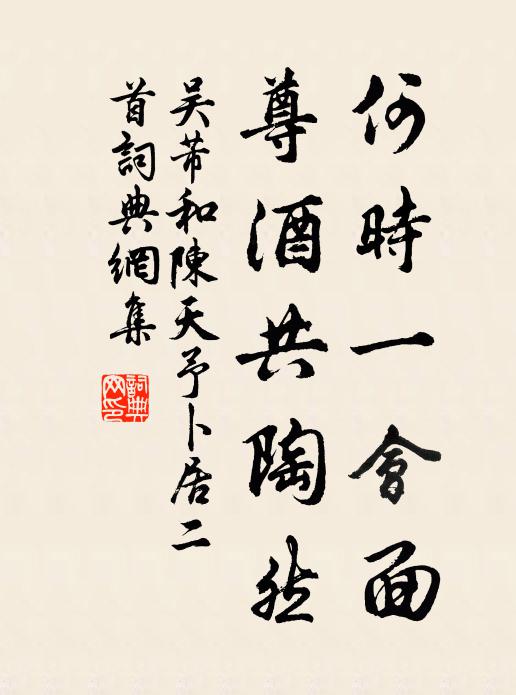 何時一會面
尊酒共陶然
吴芾和陳天予卜居二
首詞典網集
詞典
网印